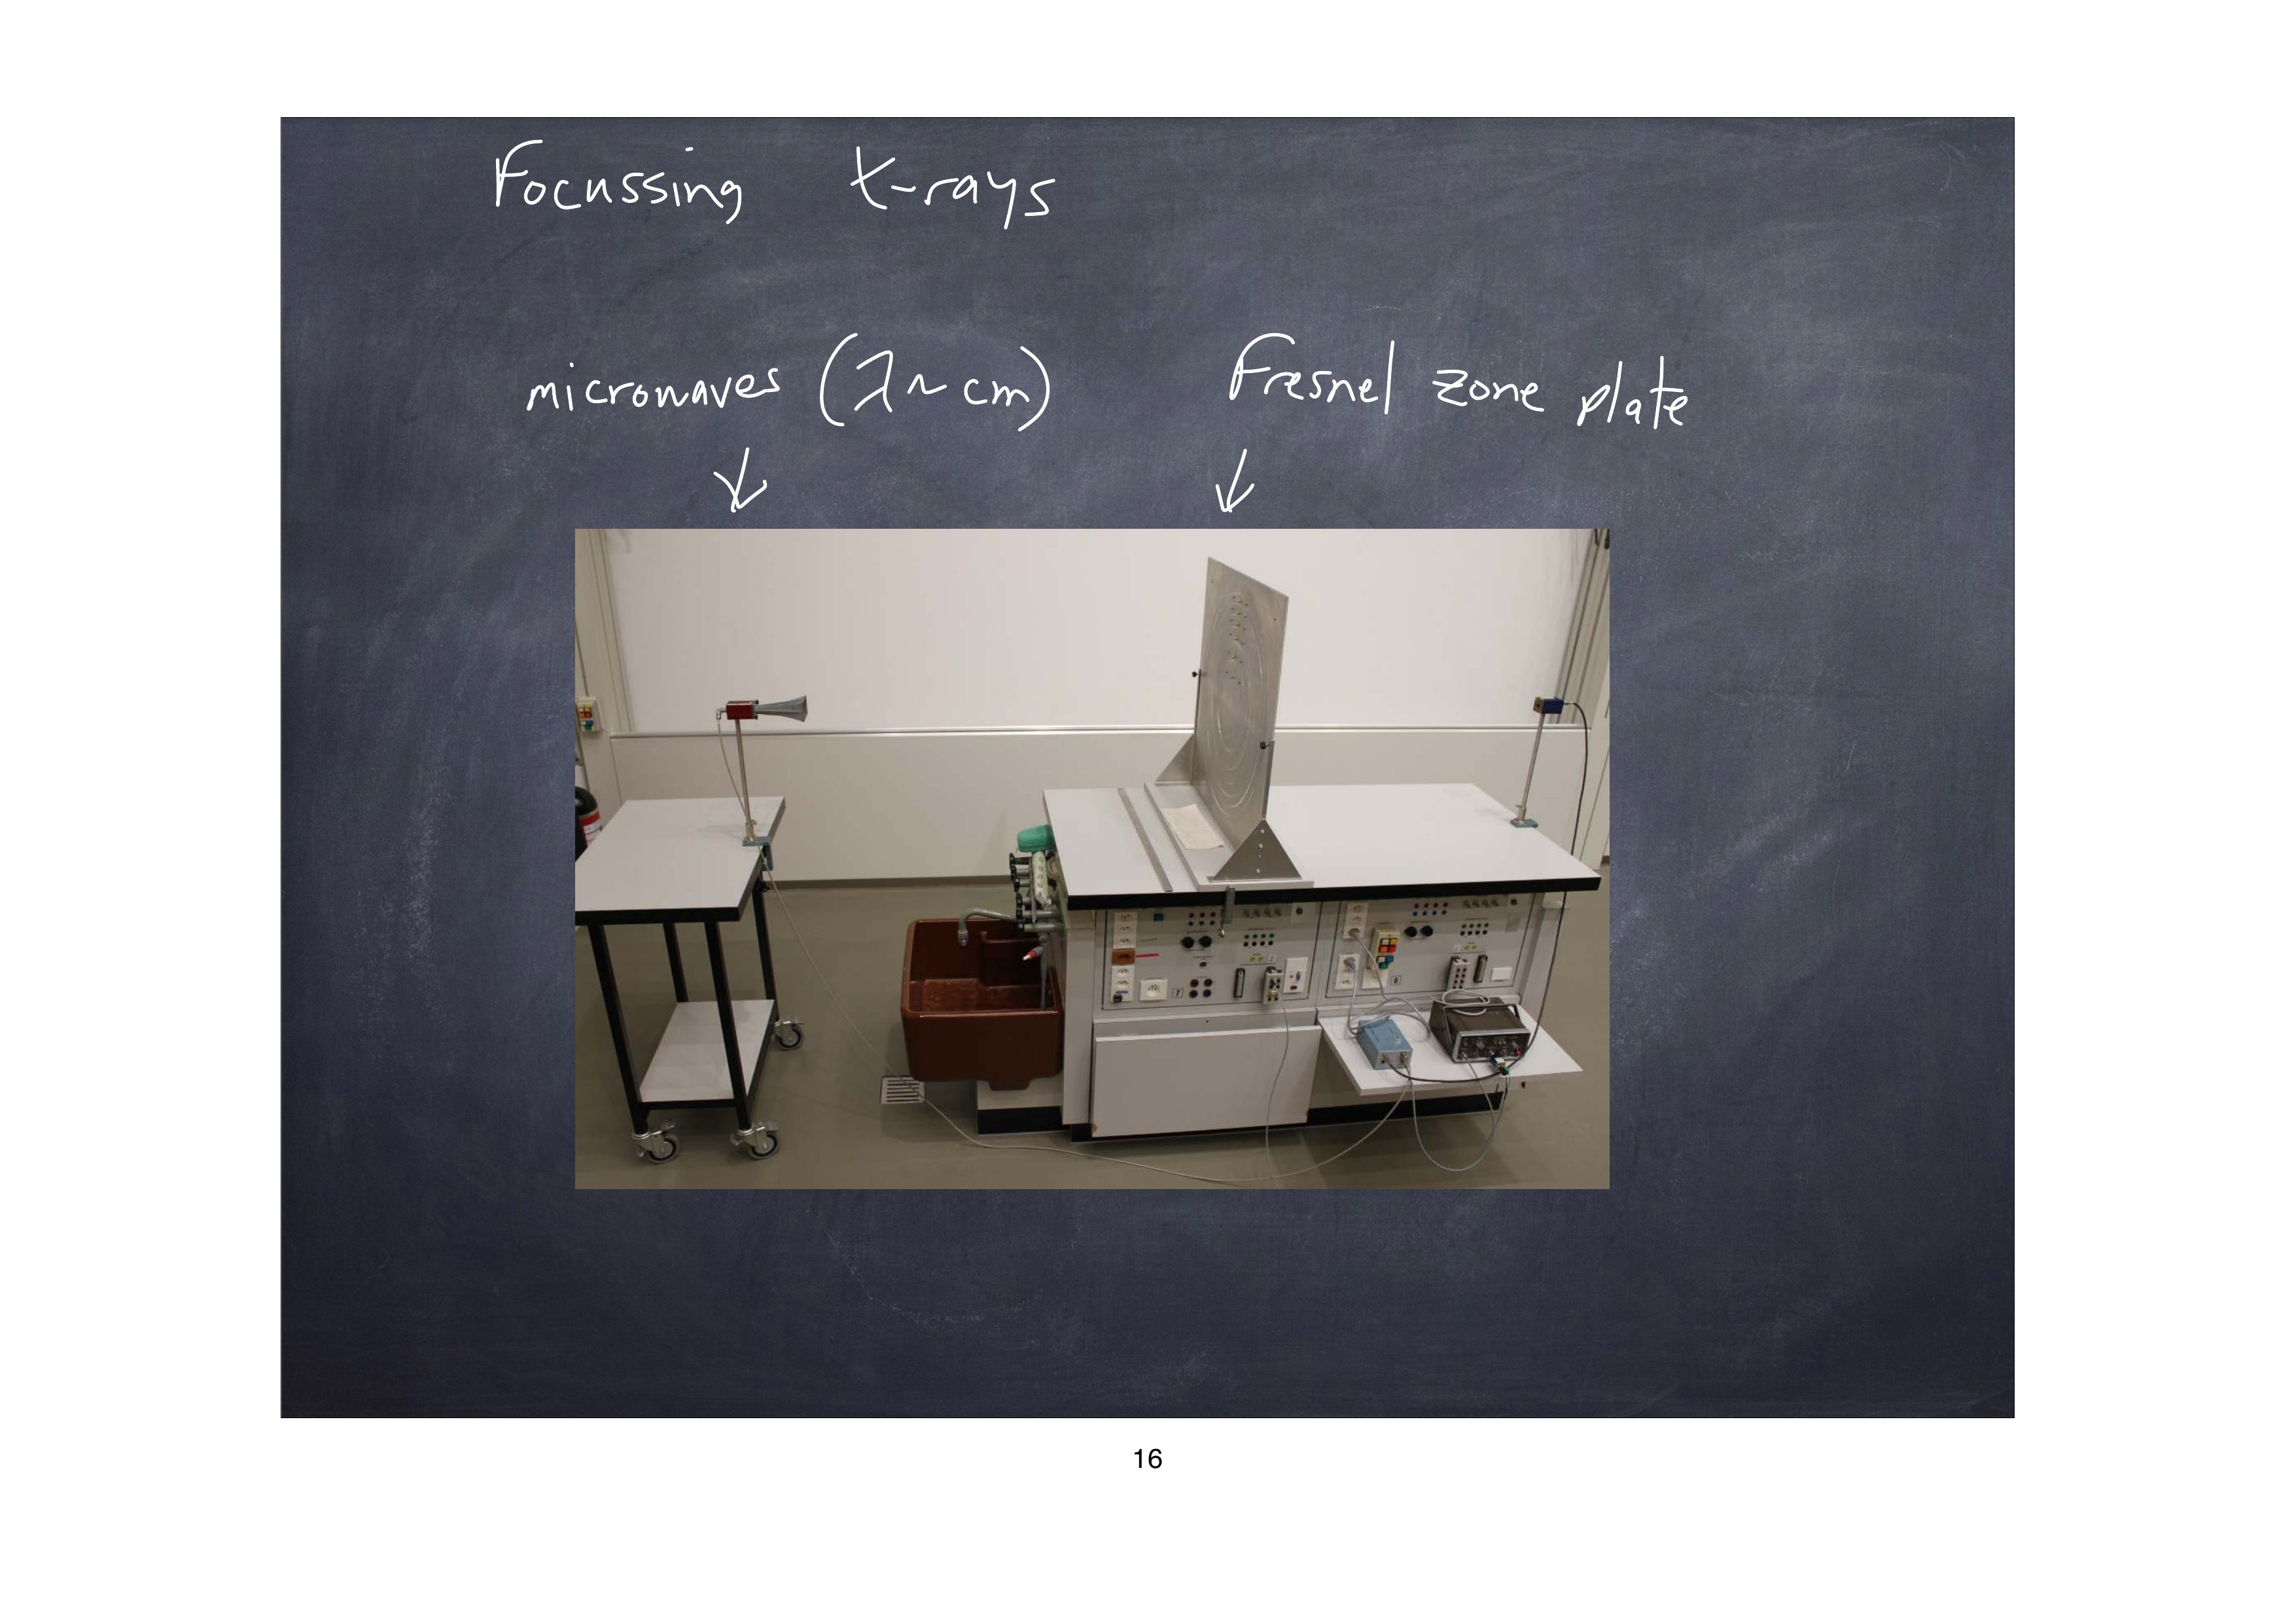 Focussing X-rays
microwaves (λ ~ cm)
Fresnel zone plate
7
6
16